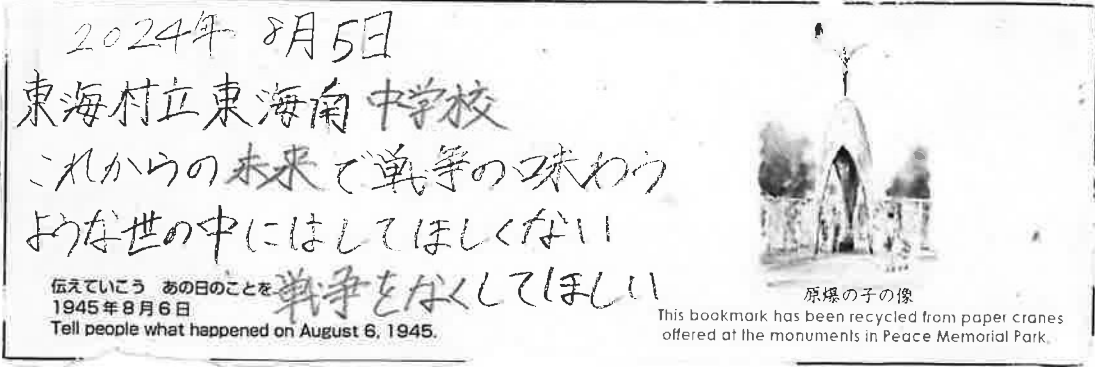 2024年 8月5日
東海村立東海南中学校
これからの未来で戦争の味わう
ような世の中にはしてほしくない
戦争をなくしてほしい
伝えていこう あの日のことを
1945年8月6日
Tell people what happened on August 6, 1945.
原爆の子の像
This bookmark has been recycled from paper cranes
offered at the monuments in Peace Memorial Park.